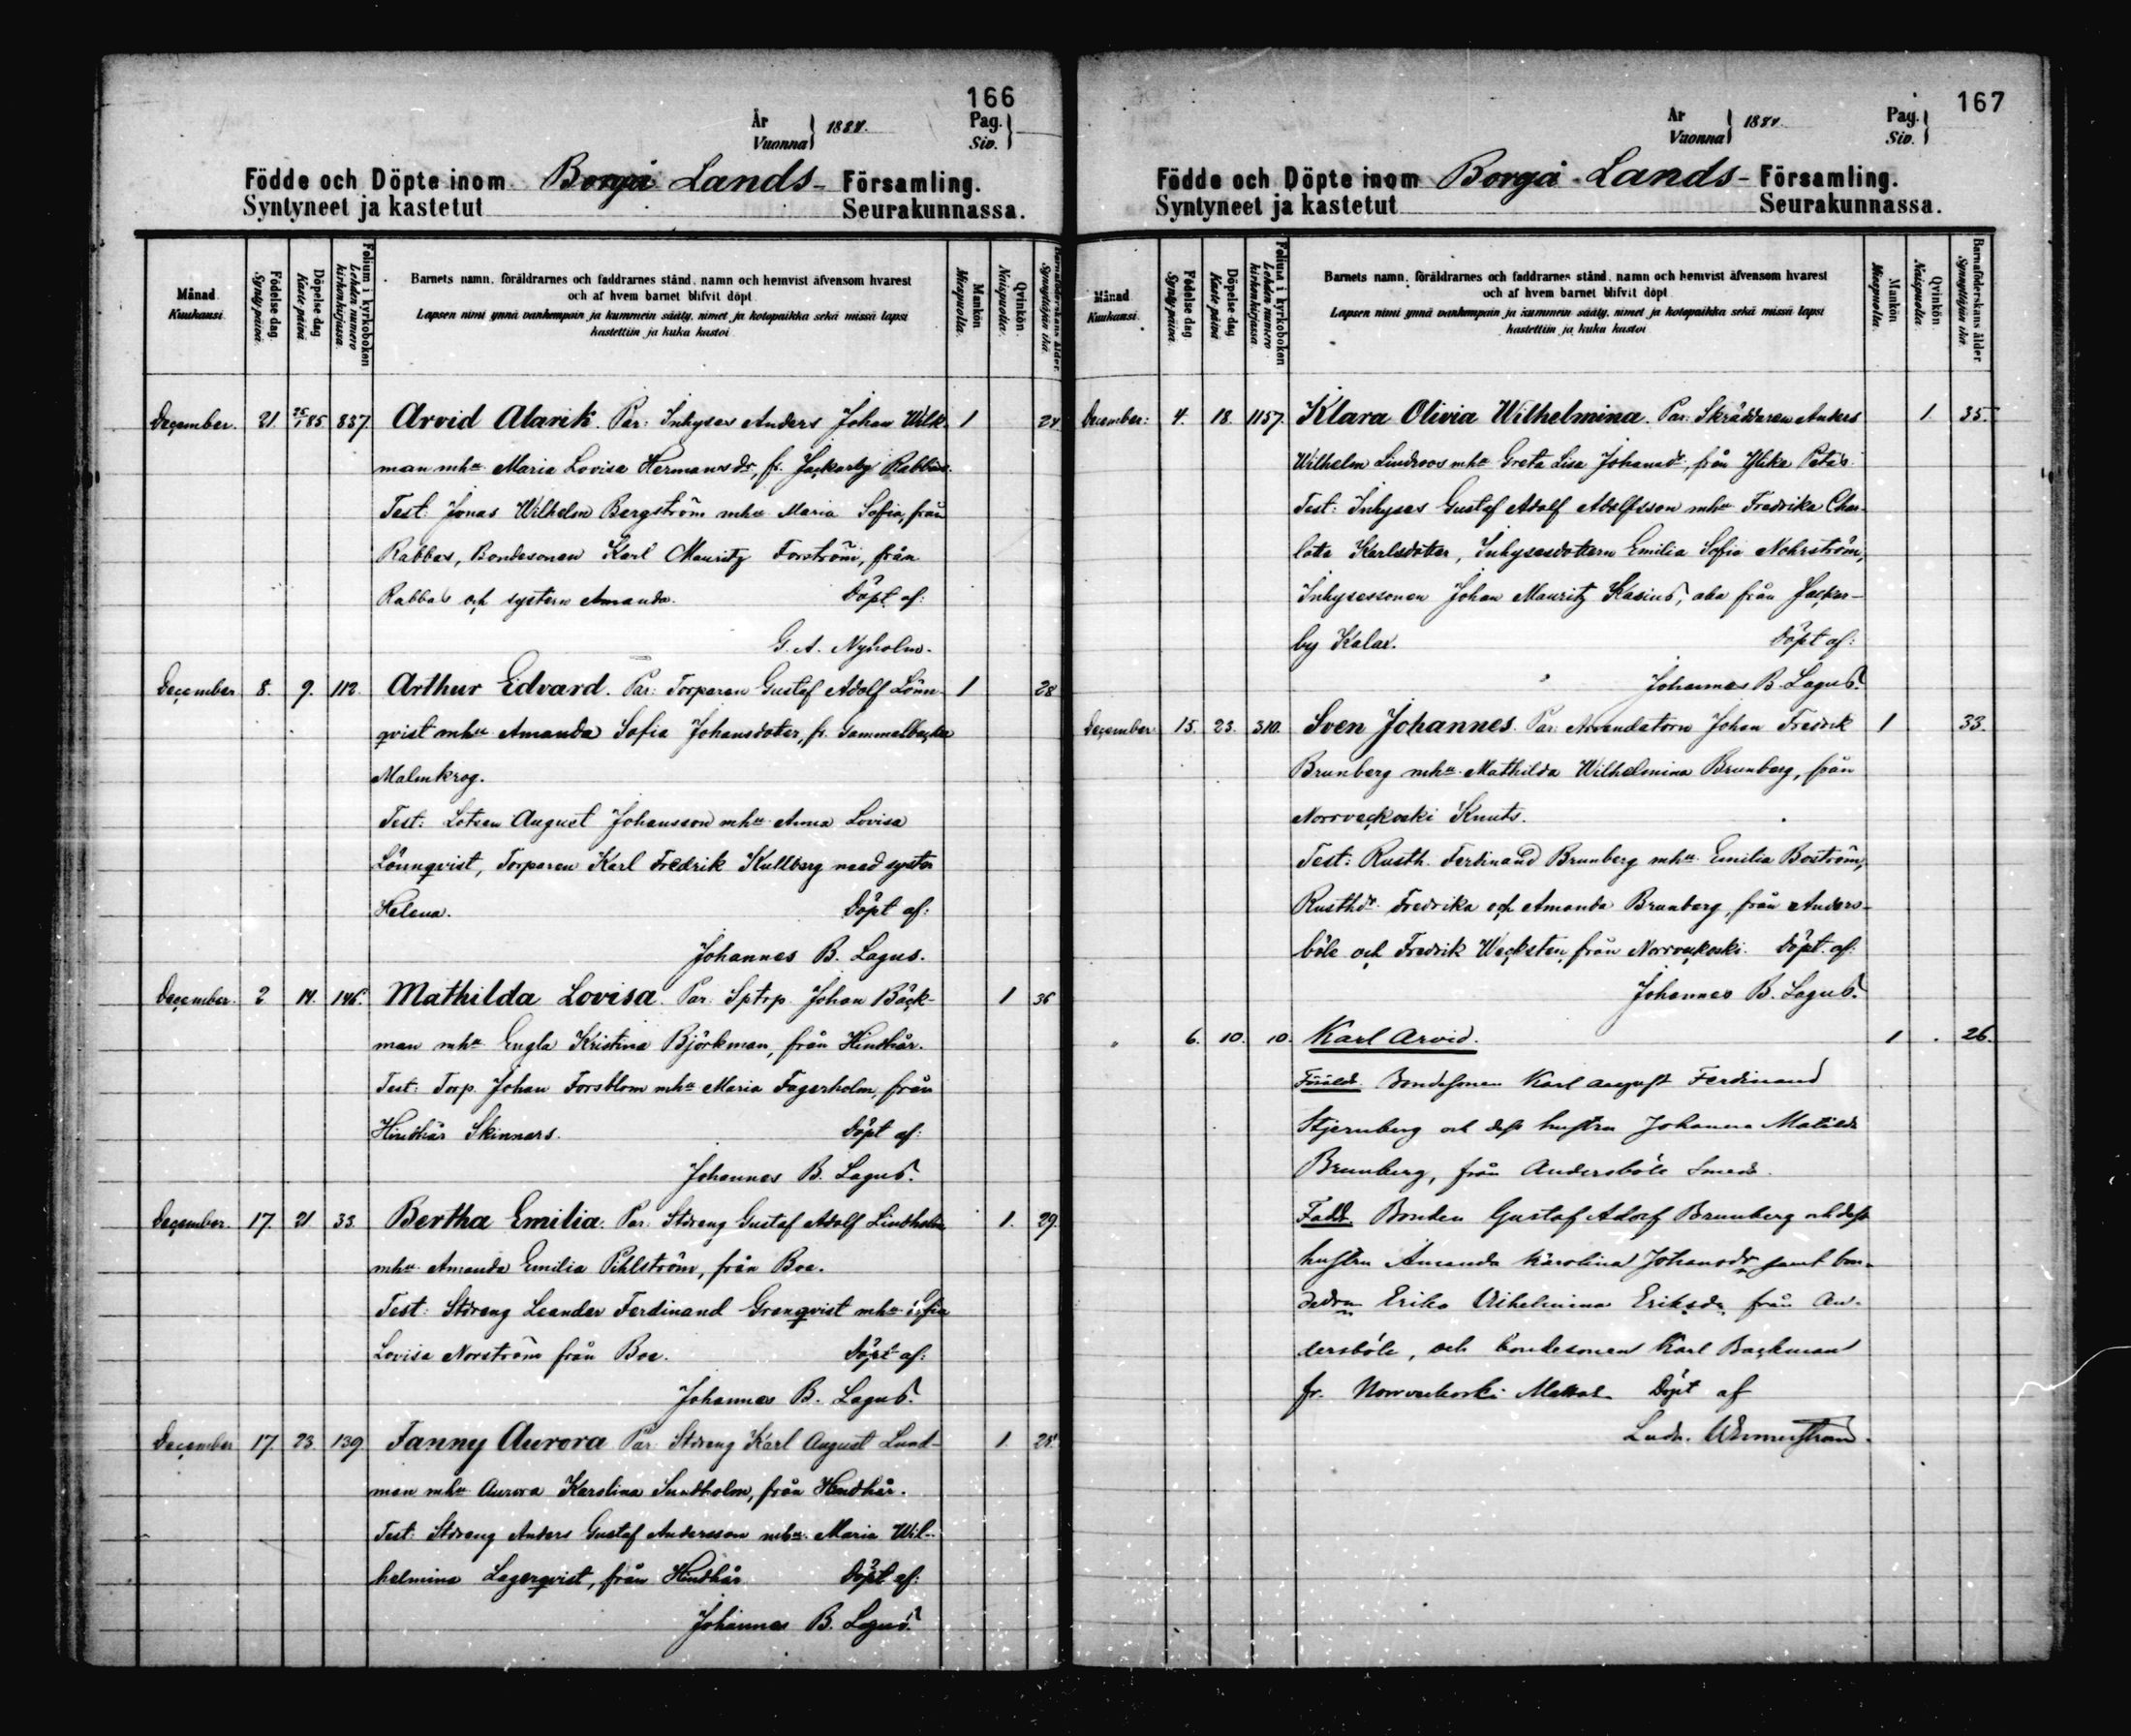 166
År
Vuonna } 1884.
Pag.
Siv.
Födde och Döpte inom Borgå Lands- Församling.
Syntyneet ja kastetut Seurakunnassa.
Månad
Kuukausi
Födelse dag
Syntypäivä
Döpelse dag
Kaste päivä
Folium i kyrkoboken
Lehden numero kirkonkirjassa
Barnets namn, föräldrarnes och faddrarnes stånd, namn och hemvist äfvensom hvarest
och af hvem barnet blifvit döpt
Lapsen nimi ynnä vanhempain ja kummein sääty, nimet ja kotopaikka sekä missä lapsi
kastettiin ja kuka kastoi
Mankön
Miespuolta.
Qvinkön
Naispuolta.
Barnaföderskans ålder
Synnyttäjän ikä
December. 21. 25/1 85 837 Arvid Alarik. Par: Inhyses Anders Johan Wilk- 1 24
man mhu Maria Lovisa Hermansdr, fr. Jackarby Rabbas.
Test: Jonas Wilhelm Bergström mhu Maria Sofia, från
Rabbas, Bondesonen Karl Mauritz Forström, från
Rabbas och systern Amanda. Döpt af:
G. A. Nyholm.
December 8. 9. 112. Arthur Edvard. Par: Torparen Gustaf Adolf Lönn- 1 28
qvist mhu Amanda Sofia Johansdoter, fr. Gammelbacka
Malmkrog.
Test: Lotsen August Johansson mhu Anna Lovisa
Lönnqvist, Torparen Karl Fredrik Kullberg med syster
Helena. Döpt af:
Johannes B. Lagus.
December. 2 14. 146. Mathilda Lovisa. Par: Sptrp. Johan Bäck- 1 36
man mhu Engla Kristina Björkman, från Hindhår.
Test: Torp. Johan Forsblom mhu Maria Fagerholm, från
Hindhår Skinnars. Döpt af:
Johannes B. Lagus.
December. 17. 21. 33. Bertha Emilia. Par: Stdreng Gustaf Adolf Lindholm 1. 29.
mhu Amanda Emilia Pihlström, från Boe.
Test: Stdreng Leander Ferdinand Granqvist mhu Sofia
Lovisa Norström från Boe. Döpt af:
Johannes B. Lagus.
December 17. 23. 139 Fanny Aurora Par: Stdreng Karl August Lund- 1. 25
man mhu Aurora Karolina Sundholm, från Hindhår.
Test: Stdreng Anders Gustaf Andersson mhu Maria Wil-
helmina Lagerqvist, från Hindhår Döpt af:
Johannes B. Lagus.
167
År
Vuonna } 1884.
Pag.
Siv.
Födde och Döpte inom Borgå Lands- Församling.
Syntyneet ja kastetut Seurakunnassa.
Månad
Kuukausi
Födelse dag
Syntypäivä
Döpelse dag
Kaste päivä
Folium i kyrkoboken
Lehden numero kirkonkirjassa
Barnets namn, föräldrarnes och faddrarnes stånd, namn och hemvist äfvensom hvarest
och af hvem barnet blifvit döpt
Lapsen nimi ynnä vanhempain ja kummein sääty, nimet ja kotopaikka sekä missä lapsi
kastettiin ja kuka kastoi
Mankön
Miespuolta.
Qvinkön
Naispuolta.
Barnaföderskans ålder
Synnyttäjän ikä
December: 4. 18. 1157. Klara Olivia Wilhelmina. Par: Skräddaren Anders 1. 35.
Wilhelm Lindroos mhu Greta Lisa Johansdr, från Ylike Petas.
Test: Inhyses Gustaf Adolf Adolfsson mhu Fredrika Char-
lota Karlsdoter, Inhysesdottern Emilia Sofia Nohrström,
Inhysessonen Johan Mauritz Kasius, alla från Jackar-
by Kalax. Döpt af:
Johannes B. Lagus.
December 15. 23. 310. Sven Johannes. Par: Arrendatorn Johan Fredrik 1 33.
Brunberg mhu Mathilda Wilhelmina Brunberg, från
Norrveckoski Knuts.
Test: Rusth. Ferdinand Brunberg mhu Emilia Boström,
Rusthdr. Fredrika och Amanda Brunberg, från Anders-
böle och Fredrik Weckstén från Norrveckoski. Döpt af:
Johannes B. Lagus.
" 6. 10. 10. Karl Arvid. 1 26.
Föräldr. Bondesonen Karl August Ferdinand
Stjernberg och dess hustru Johanna Matilda
Brunberg, från Andersböle Smeds.
Fadd. Bonden Gustaf Adolf Brunberg och dess
hustru Amanda Karolina Johansdr samt bon-
dedrn Erika Vilhelmina Eriksdr från An-
dersböle, och bondesonen Karl Backman
fr. Norrveckoski Döpt af